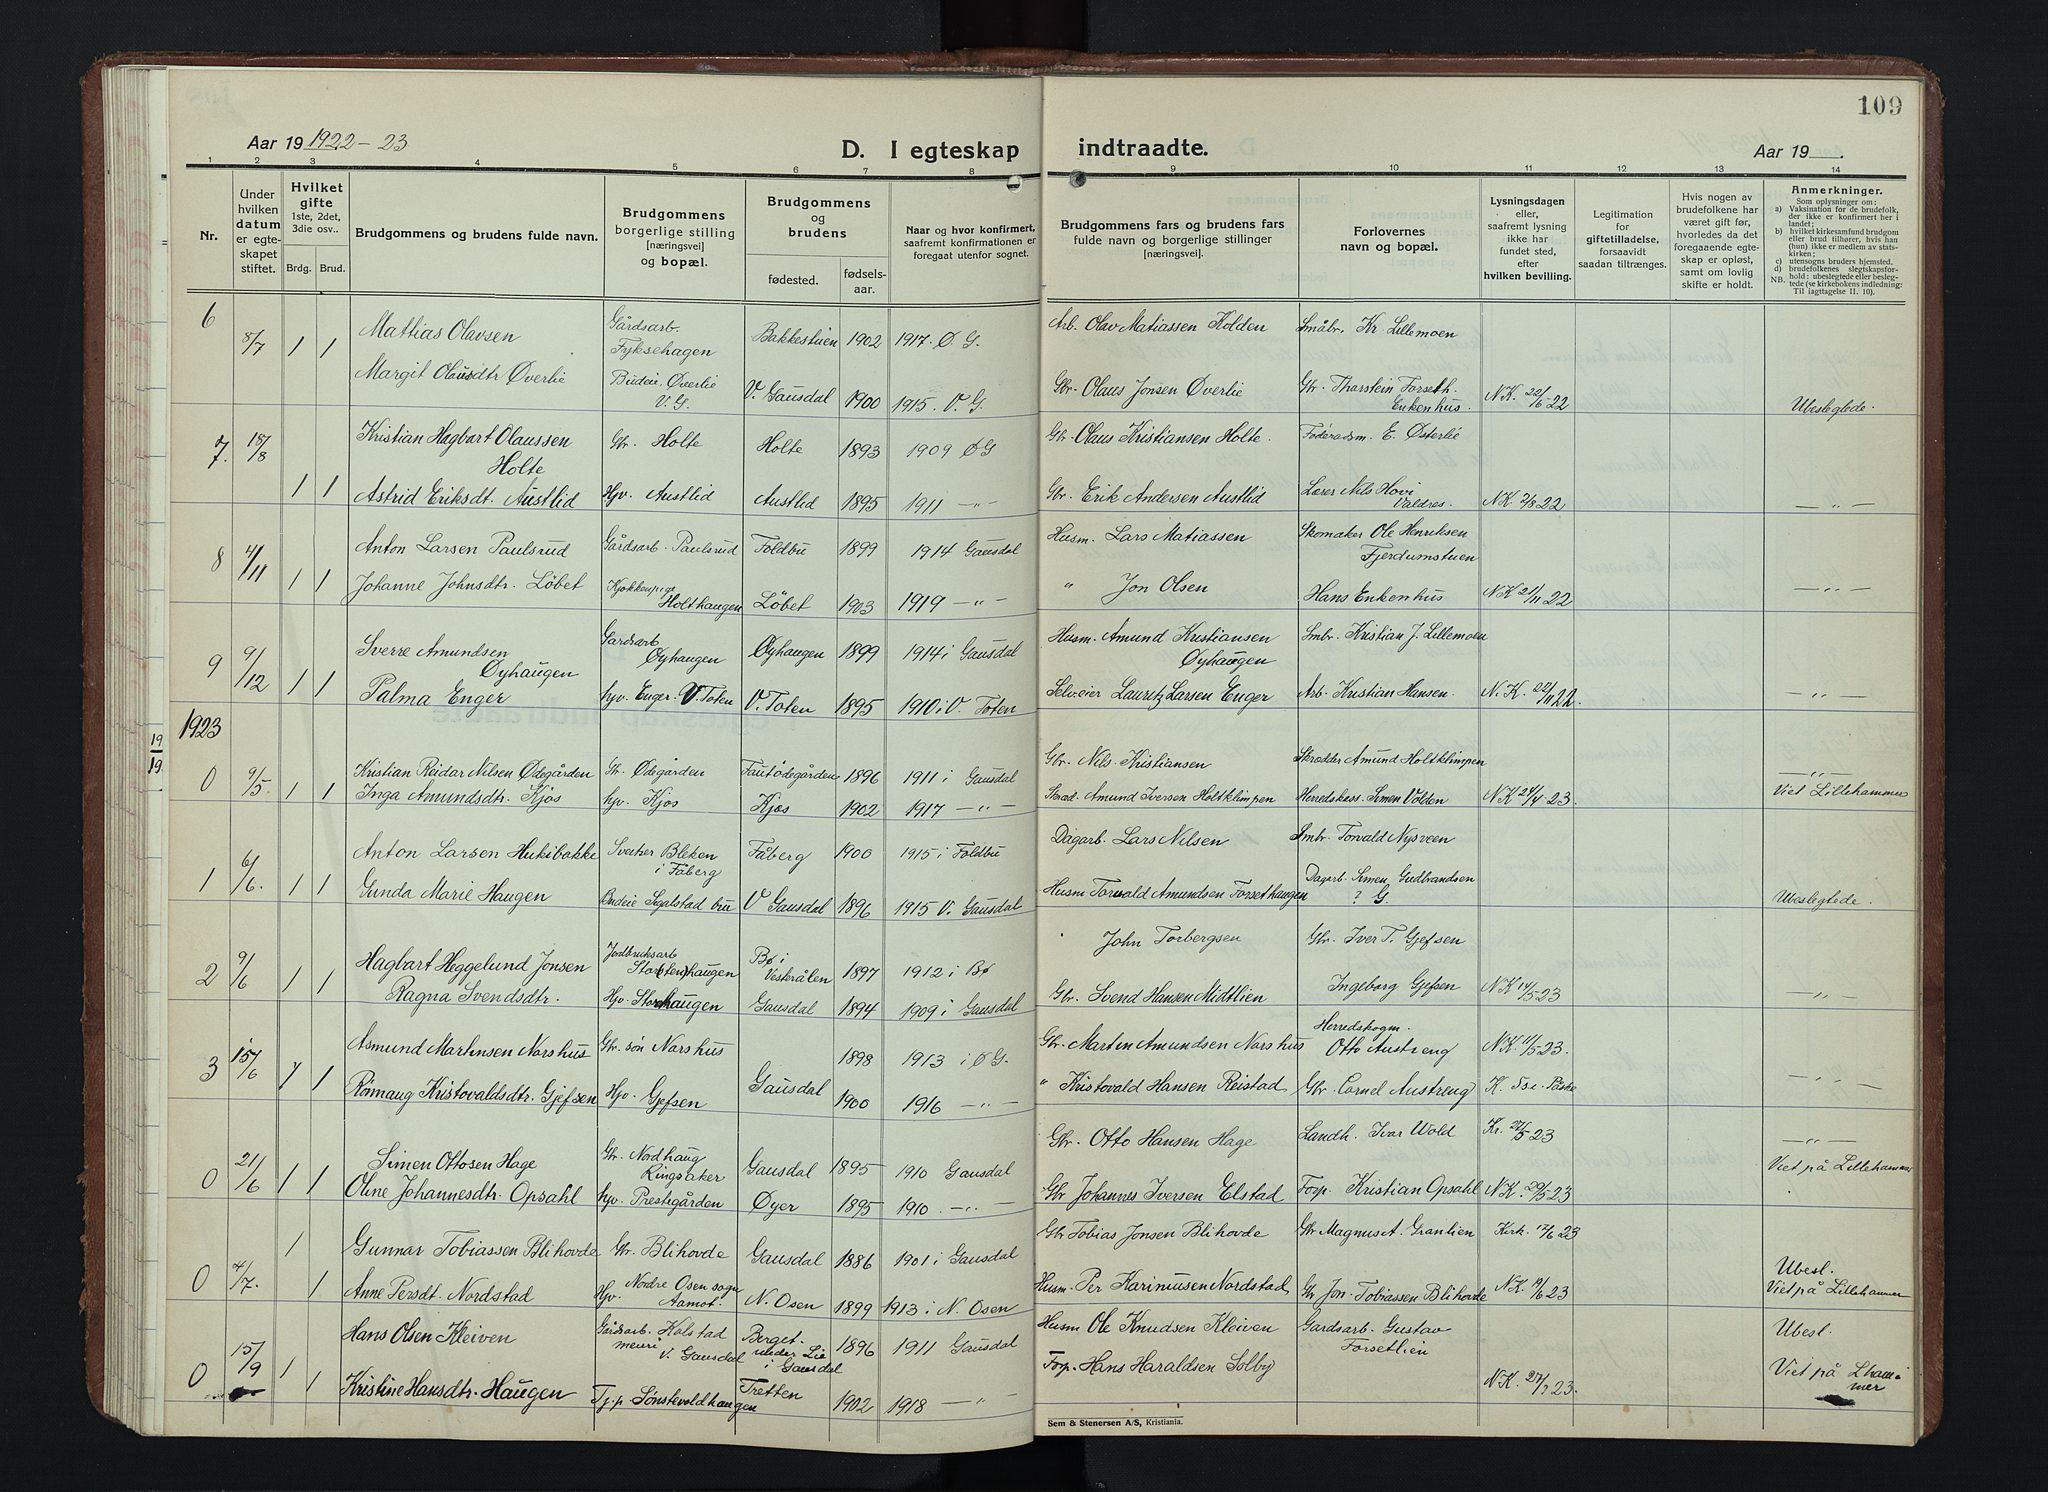 109
Aar 19 1922-23
D. I egteskap indtraadte.
Aar 19
1 2 3 4 5 6 7 8 9 10 11 12 13 14
Nr.
Under hvilken datum er egteskapet stiftet.
Hvilket gifte 1ste, 2det, 3die osv..
Brdg. Brud.
Brudgommens og brudens fulde navn.
Brudgommens borgerlige stilling [næringsvei] og bopæl.
Brudgommens og brudens
fødested. fødselsaar.
Naar og hvor konfirmert, saafremt konfirmationen er foregaat utenfor sognet.
Brudgommens fars og brudens fars fulde navn og borgerlige stillinger [næringsvei].
Forlovernes navn og bopæl.
Lysningsdagen eller, saafremt lysning ikke har fundet sted, efter hvilken bevilling.
Legitimation for giftetilladelse, forsaavidt saadan tiltrænges.
Hvis nogen av brudefolkene har været gift før, hvorledes da det foregaaende egteskap er opløst, samt om lovlig skifte er holdt.
Anmerkninger.
Som oplysninger om:
a) Vaksination for de brudefolk, der ikke er konfirmert her i landet;
b) hvilket kirkesamfund brudgom eller brud tilhører, hvis han (hun) ikke er medlem av statskirken;
c) utensogns bruders hjemsted.
d) brudefolkenes slegtskapsforhold: ubeslegtede eller beslegtede (se kirkebokens indledning:
NB. Til iagttagelse II. 10).
6 8/7 1 1 Mattias Olavsen Gårdsarb. Fyksehagen Bakkestuen 1902 1917. Ø. G. Arb. Olav Matiassen Kolden Småbr. Kr. Lillemoen
Margit Olausdtr Øverlie Budeie, Øverlie V. G. V. Gausdal 1900 1915. V. G. Gbr. Olaus Jonsen Øverlie Gbr. Thorstein Forseth. Enkenhus. N.K. 22/6 22 Ubeslegtede.
7. 18/8 Kristian Hagbart Olaussen Holte Gbr. Holte Holte 1893 1909 ØG Gbr. Olaus Kristiansen Holte. Föderadsm. E. Østerlie
1 1 Astrid Eriksdt. Austlid Hjv. Austlid Austlid 1895 1911 —"— Gbr. Erik Andersen Austlid Lærer Nils Hovi Valdres. N K. 2/8 22 —"—
8 4/11 Anton Larsen Paulsrud Gårdsarb. Paulsrud Foldbu 1899 1914 Gausdal Husm. Lars Matiassen Skomaker Ole Henriksen Fjerdumstuen
1 1 Johanne Johnsdtr. Løbet Kjøkkenpige Holthaugen Løbet 1903 1919 —"— " Jon Olsen Hans Enkenhus N K 21/11 22 —"—
9 9/12 Sverre Amundsen Øyhaugen Gardsarb Øyhaugen Øyhaugen 1899 1914 i Gausdal Husm. Amund Kristiansen Øyhaugen Smbr. Kristian J. Lillemoen
1 1 Palma Enger hjv. Enger. V. Toten V. Toten 1895 1910 i V. Toten Selveier Lauritz Larsen Enger Arb. Kristian Hansen. N. K. 22/11 22. —"—
1923
19/19
0 9/5 Kristian Reidar Nilsen Ødegården Gbr. Ødegården Fautødegården 1896 1911 i Gausdal Gbr. Nils Kristiansen Skrædder Amund Holtklimpen —"—
1 1 Inga Amundsdtr. Kjos hjv. Kjos Kjos 1902 1917 —"— Skræd. Amund Iversen Holtklimpen Herredskass. Simen Volden N K 24/4 23. Viet Lillehammer
1 6/6. Anton Larsen Hukibakke Sveitser Bleken i Fåberg Fåberg 1900 1915 i Foldbu Dagarb. Lars Nilsen Smbr. Torvald Nysveen
1 1 Gunda Marie Haugen Budeie Segalstad bru V Gausdal 1896 1915 V. Gausdal Husm Torvald Amundsen Forsethaugen Dagarb. Simen Gudbrandsen ? G. Ubeslegtede.
2 9/6 Hagbart Heggelund Jonsen Jordbruksarb Stor(sten)haugen Bø i Vesterålen 1897 1912 i Bø John Torbergsen Gbr. Iver T. Gjefsen
1 1 Ragna Svendsdtr. Hjv. Storhaugen Gausdal 1894 1909 i Gausdal Gbr. Svend Hansen Midtlien Ingeborg Gjefsen N K 14/5 23 —"—
3 15/6 Asmund Martinsen Norshus Gbr. søn Norshus 1898 1913 i ØG. Gbr. Martin Amundsen Norshus Herredskogm. Otto Austreng N K. 11/5 23.
1 1 Rønnaug Kristovaldsdtr. Gjefsen Hjv. Gjefsen Gausdal 1900 1916 —"— " Kristovald Hansen Reistad Gbr. Cornel Austreng K. 5 s. i. Påske —"—
0 21/6 Simen Ottosen Hage Gbr. Nordhaug Ringsaker Gausdal 1895 1910 Gausdal Gbr. Otto Hansen Hage Landh. Ivar Wold Kr. 27/5 23 —"—
1 1 Oline Johannesdtr. Opsahl hjv. Prestegården Øyer 1895 1910. —"— Gbr Johannes Iversen Elstad Forp. Kristian Opsahl N K. 29/5 23 Viet på Lillehammer
0 4/7. 1 Gunnar Tobiassen Blihovde Gbr. Blihovde Gausdal 1886 1901 i Gausdal Gbr Tobias Jonsen Blihovde Gbr Magnus A. Granlien Kirk. 17/6 23
1 Anne Persdt. Nordstad Hjv. Nordre Osen sogn Aamot. N. Osen 1899 1913 i N. Osen Husm. Per Karinusen Nordstad Gbr Jon Tobiassen Blihovde N K. 19/6 23 Ubesl. Viet på Lillehammer
0 15/9 1 Hans Olsen Kleiven Gårdsarb. Kolstad meieri V. Gausdal Berget under Lie i Gausdal 1896 1911 Gausdal Husm Ole Knudsen Kleiven Gardsarb. Gustav Forsetlien Ubesl.
1 Kristine Hansdtr. Haugen Tj.p. Sønstevoldhaugen Tretten 1902 1918 —"— Forp. Hans Haraldsen Solby N K. 27/7 23. Viet på Lhammer
Sem & Stenersen A/S, Kristiania.